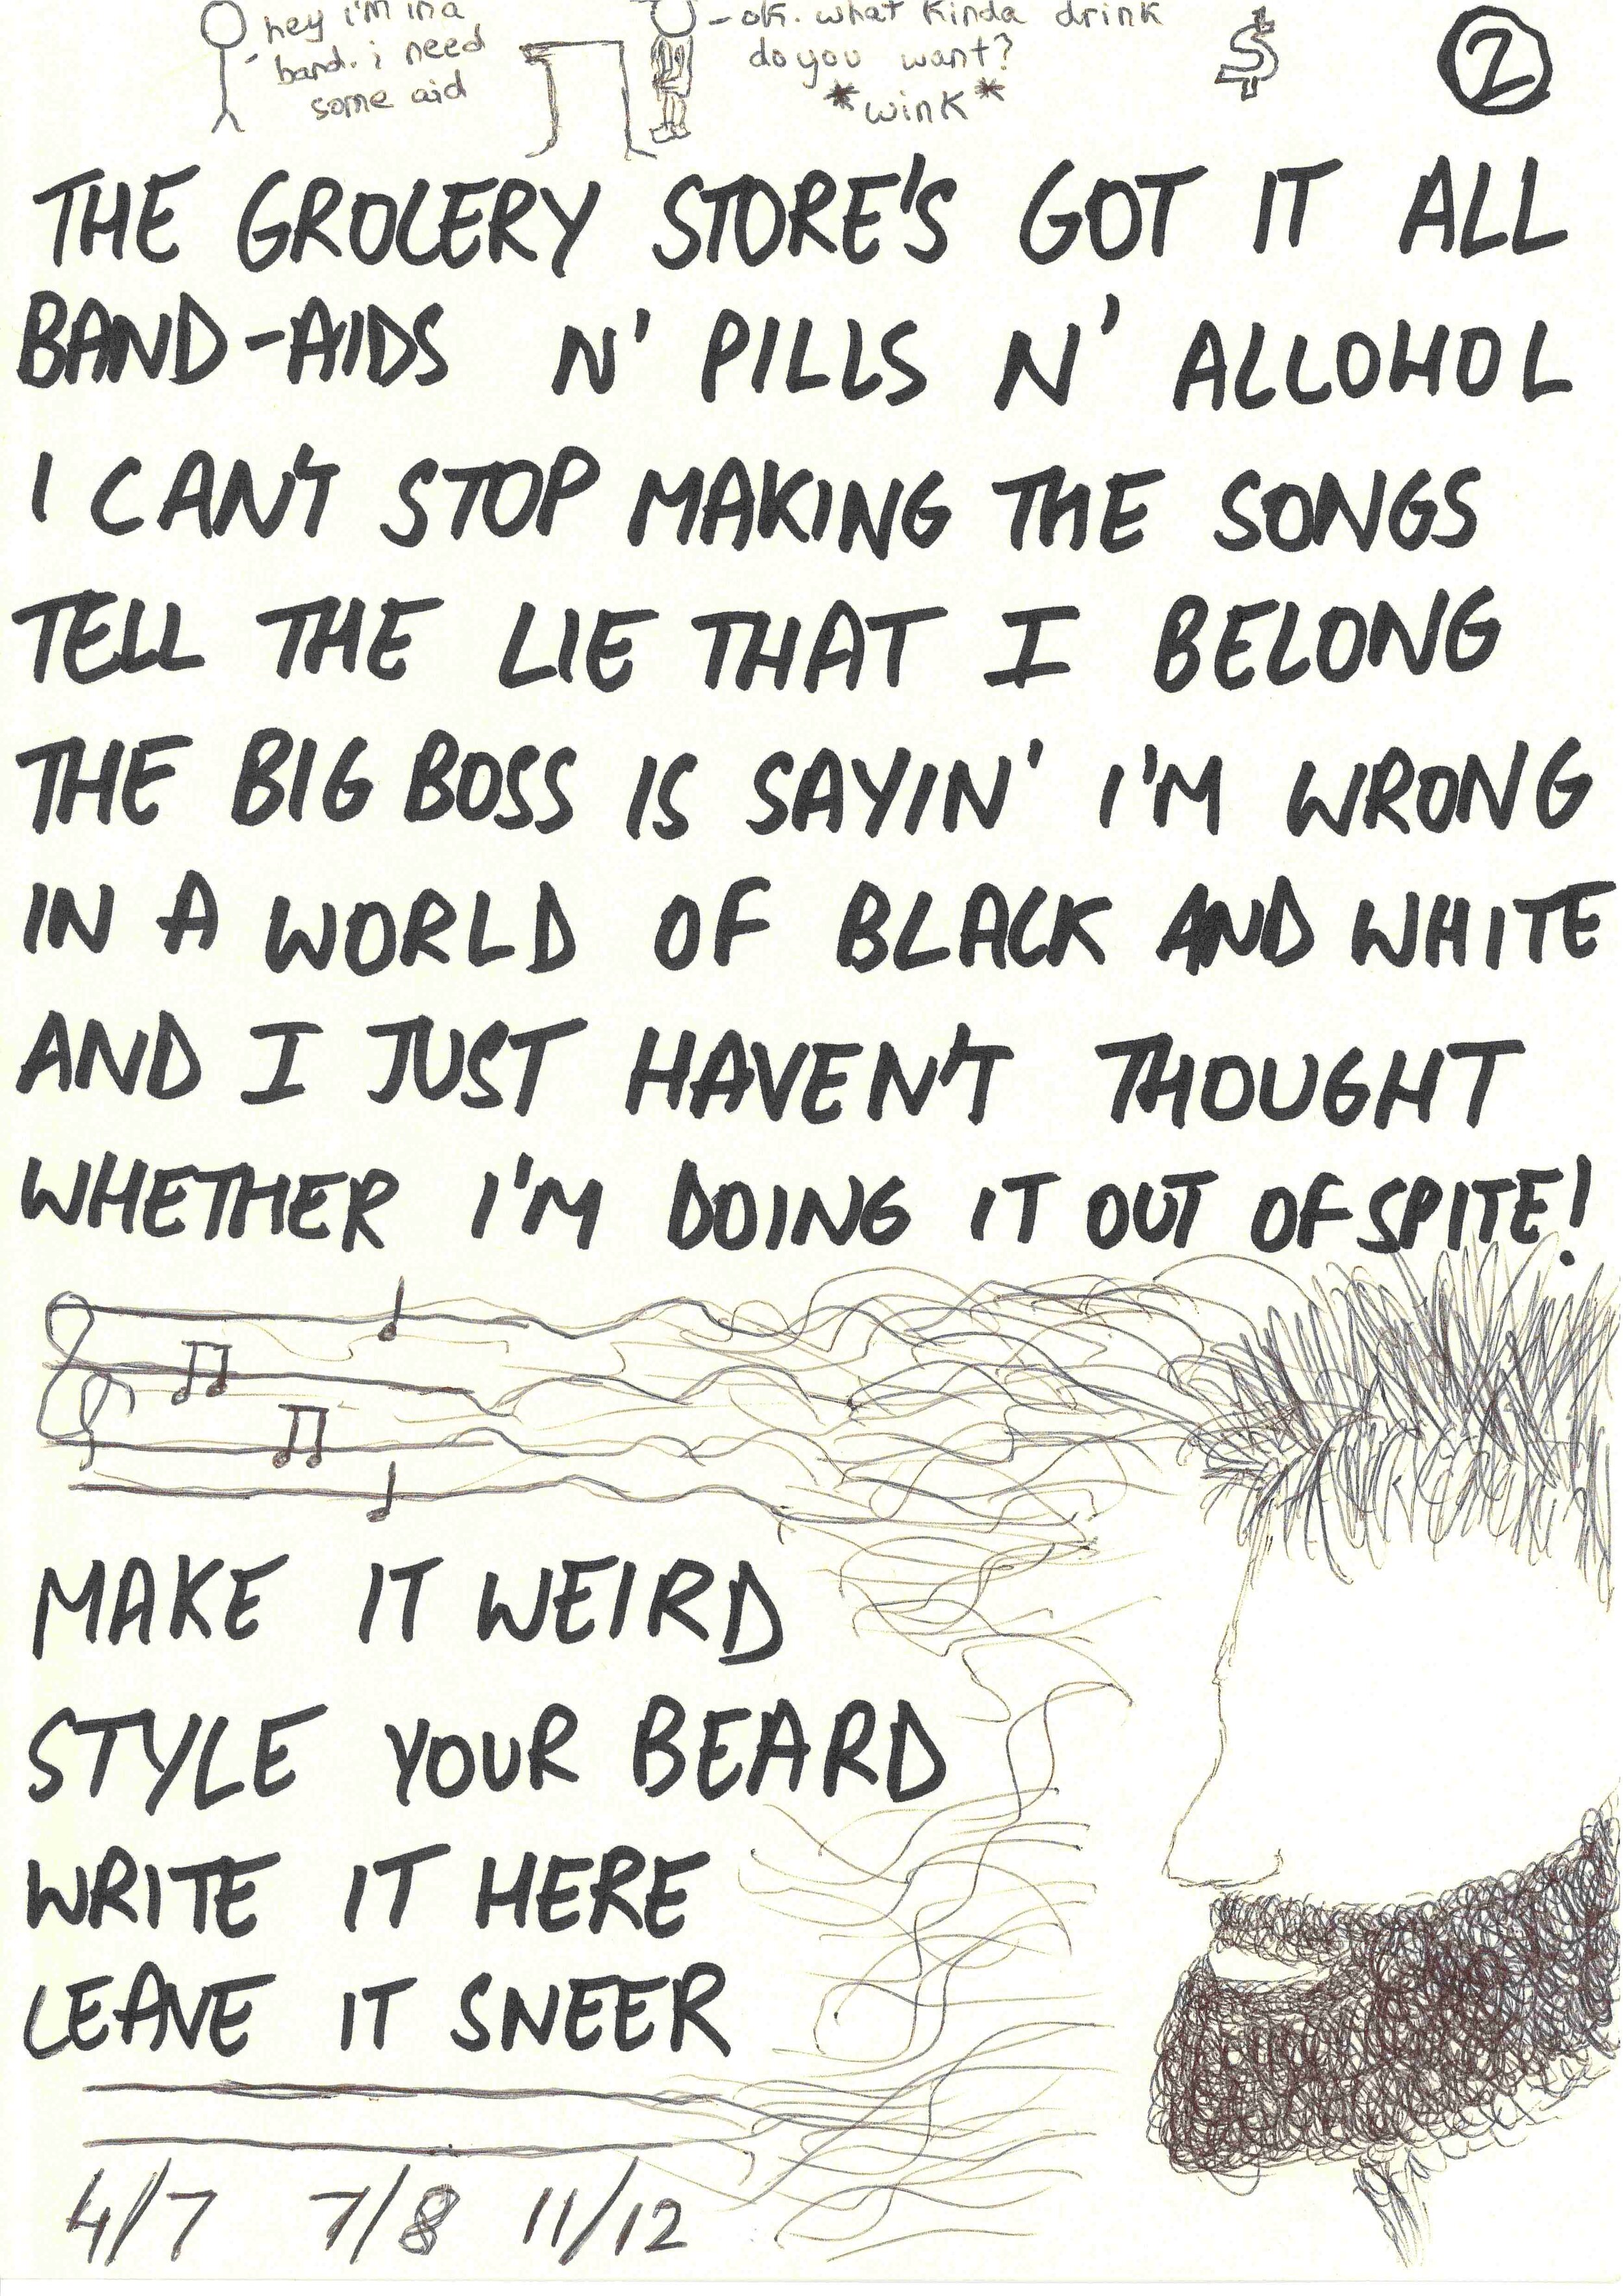 hey i'm in a
band. i need
some aid
-ok. what kinda drink
do you want?
*wink*
$
2
THE GROCERY STORE'S GOT IT ALL
BAND-AIDS N' PILLS N' ALCOHOL
I CAN'T STOP MAKING THE SONGS
TELL THE LIE THAT I BELONG
THE BIG BOSS IS SAYIN' I'M WRONG
IN A WORLD OF BLACK AND WHITE
AND I JUST HAVEN'T THOUGHT
WHETHER I'M DOING IT OUT OF SPITE!
MAKE IT WEIRD
STYLE YOUR BEARD
WRITE IT HERE
LEAVE IT SNEER
4/7 7/8 11/12